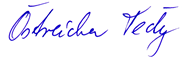 Östreicher Tedy